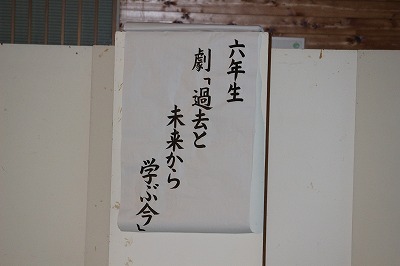 六年生
劇「過去と
未来から
学ぶ今」